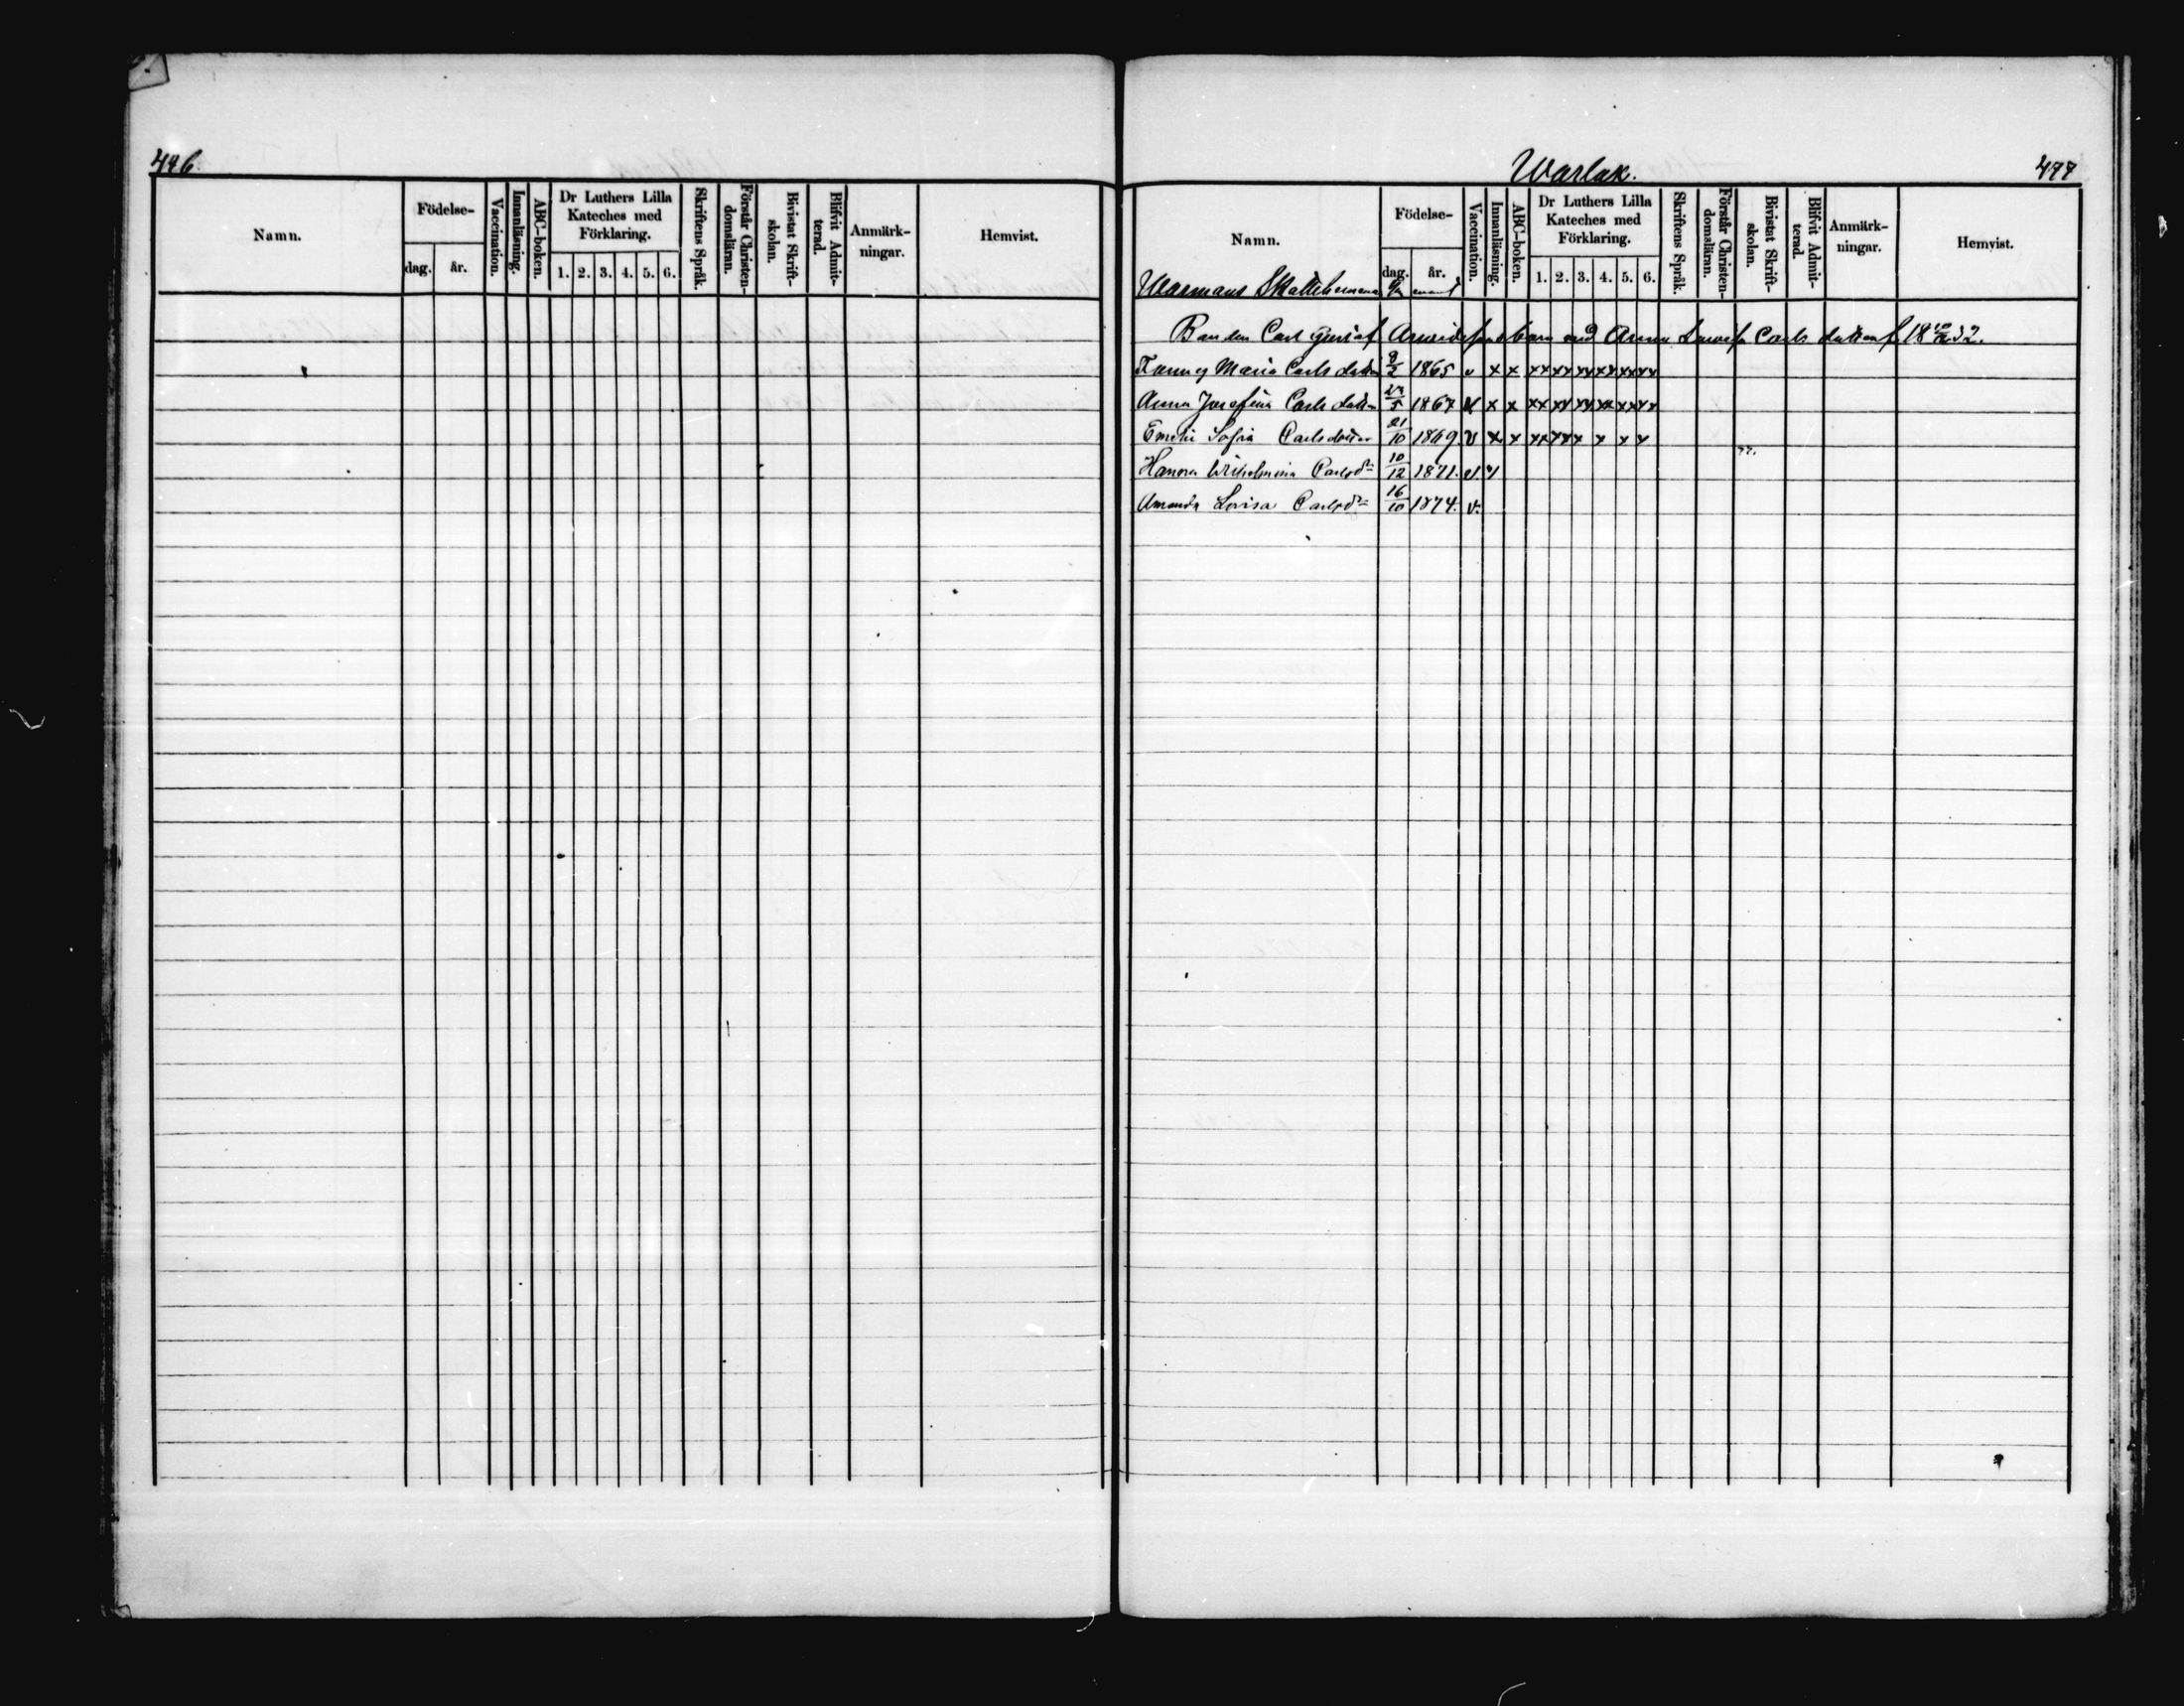 446.
Namn.
Födelse-
dag.
år.
Vaccination.
Innanläsning.
ABC-boken.
Dr Luthers Lilla
Kateches med
Förklaring.
1. 2. 3. 4. 5. 6.
Skriftens Språk.
Förstår Christen-
domsläran.
Bivistat Skrift-
skolan.
Blifvit Admit-
terad.
Anmärk-
ningar.
Hemvist.
Warlax.
477
Namn.
Födelse-
dag.
år.
Vaccination.
Innanläsning.
ABC-boken.
Dr Luthers Lilla
Kateches med
Förklaring.
1. 2. 3. 4. 5. 6.
Skriftens Språk.
Förstår Christen-
domsläran.
Bivistat Skrift-
skolan.
Blifvit Admit-
terad.
Anmärk-
ningar.
Hemvist.
Warmans Skattehemman
Bonden Carl Gustaf barn med Anna Carls dotter f. 18 32.
Fanny Maria Carls dotter 9/2 1865 v x x xx xx xx xx xx xx
Anna Josefina Carls dotter 27/5 1867 v x x xx xx xx xx xx xx
Emelie Sofia Carlsdotter 21/10 1869 v x x xx xx x x x x
Hanna Wilhelmina Carlsdr 10/12 1871. v.
Amanda Lovisa Carlsdr 16/10 1874. v.